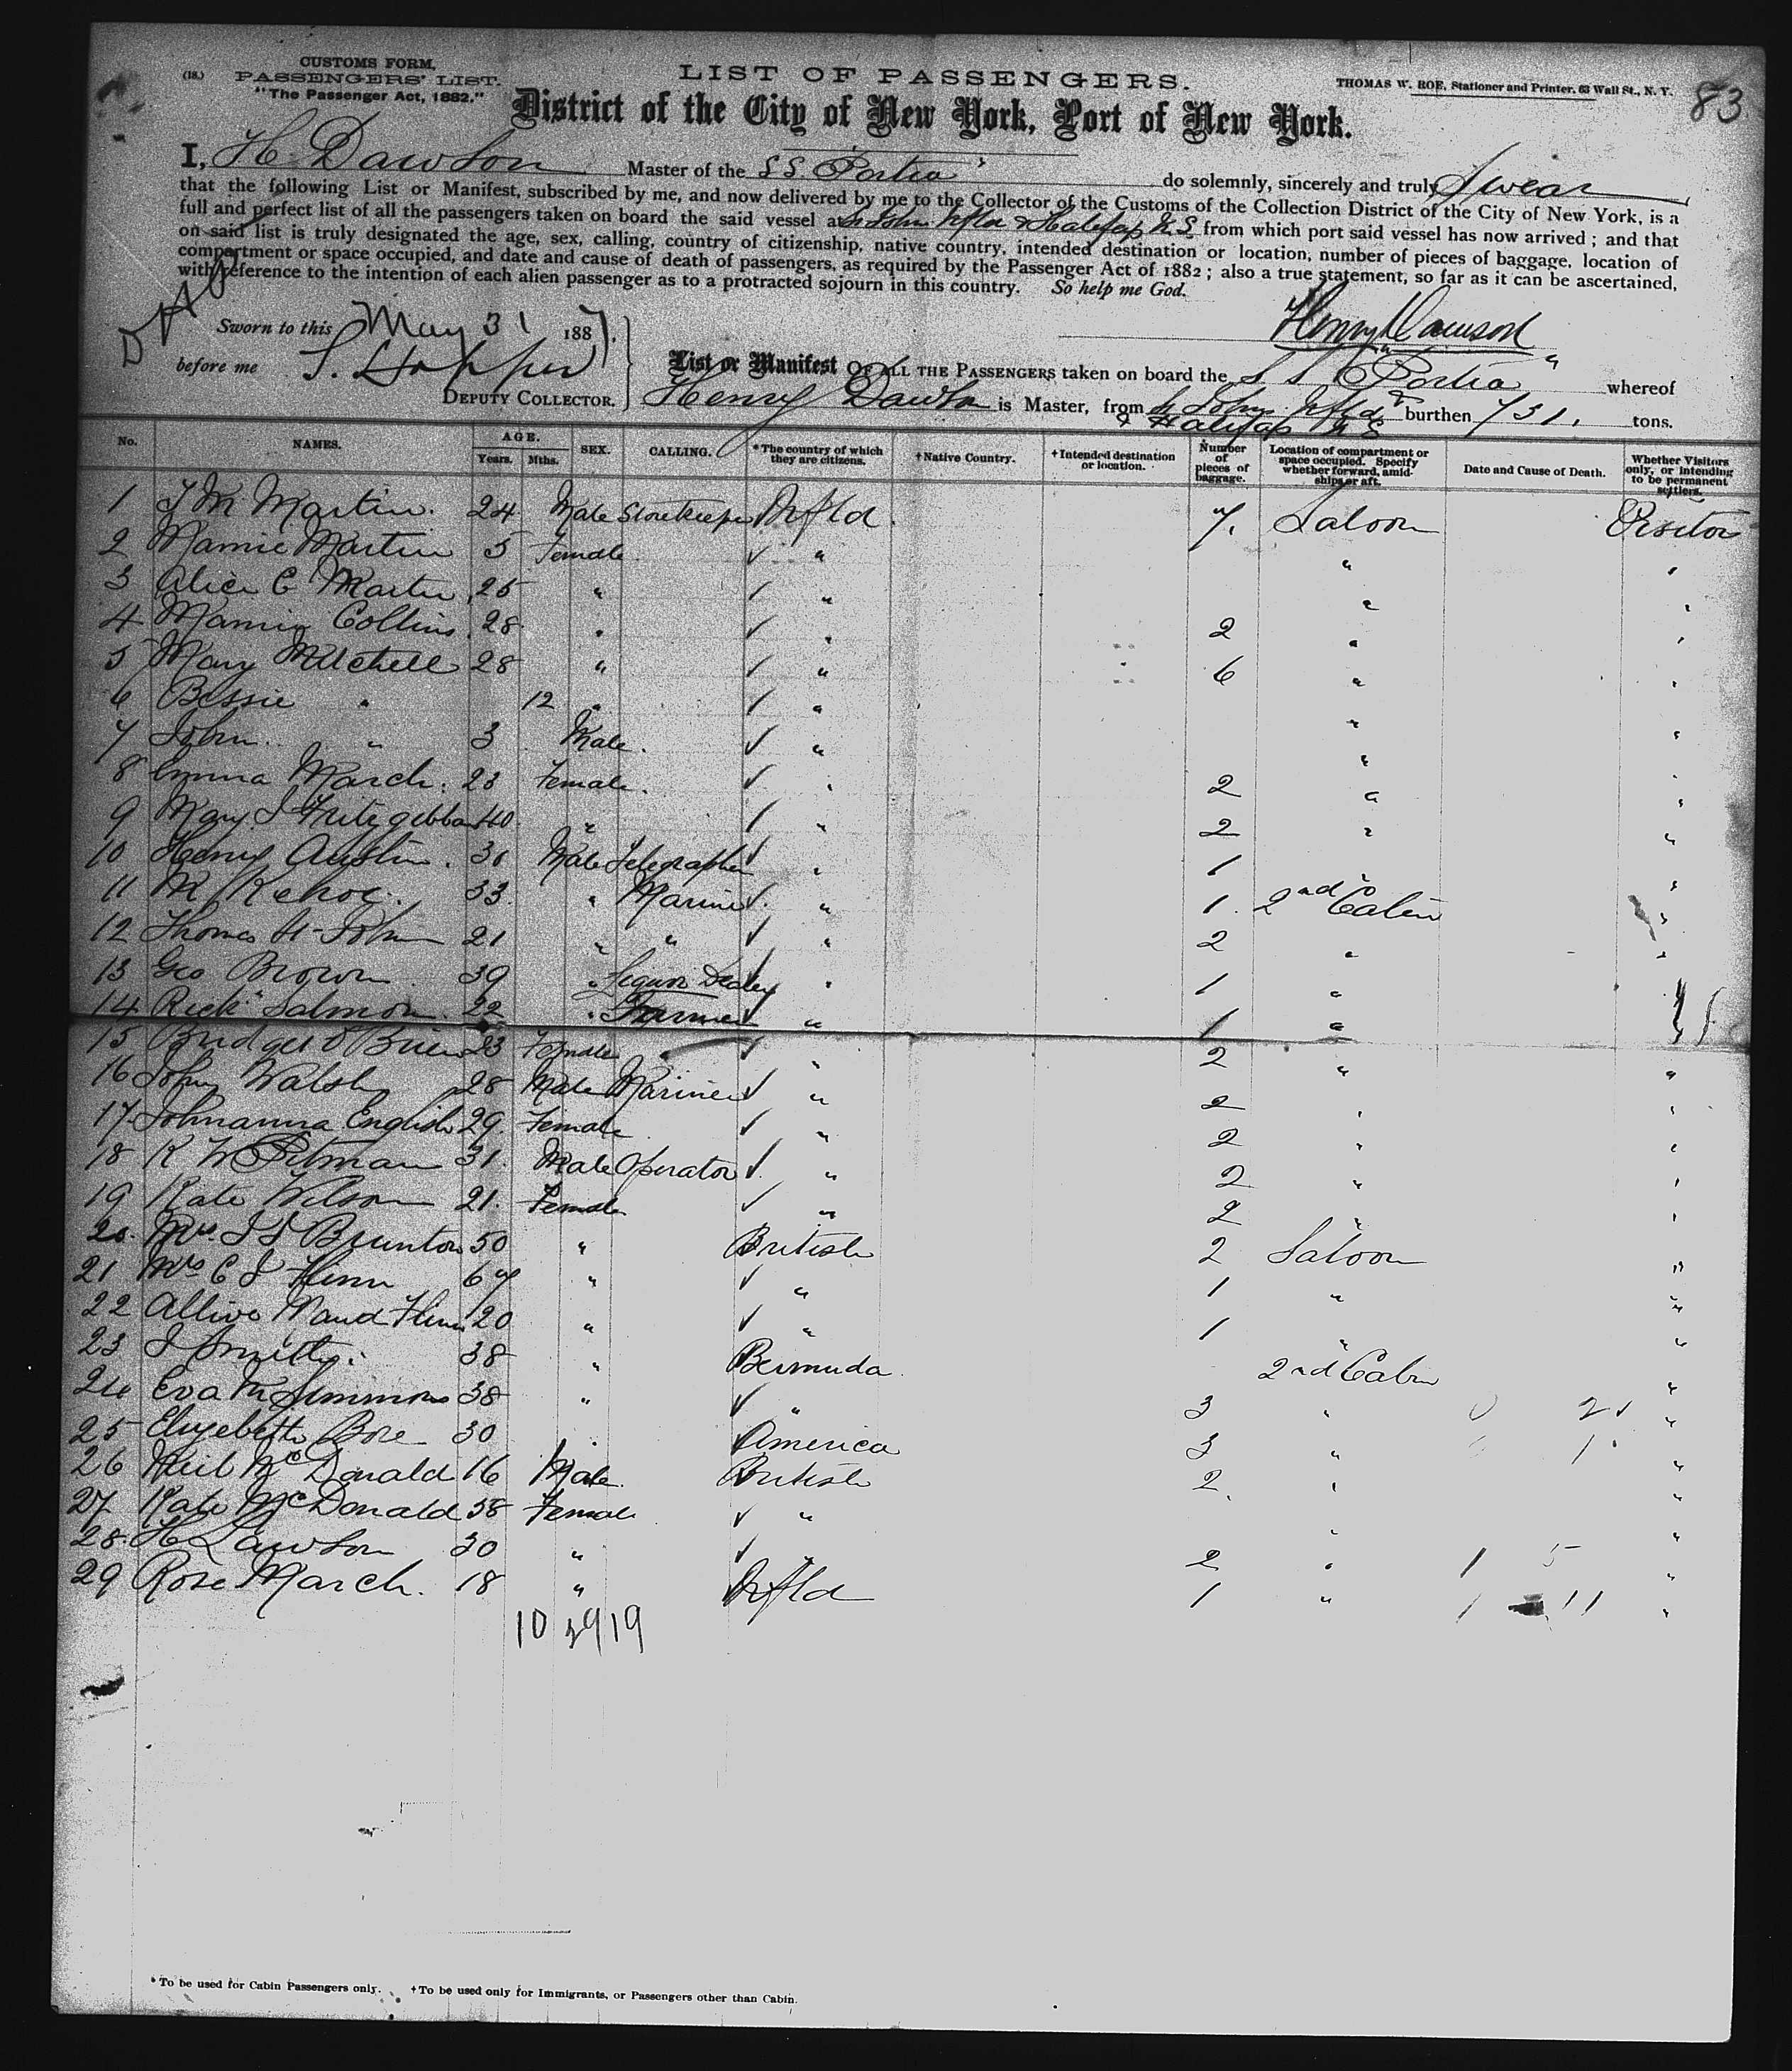 CUSTOMS FORM,
(18.) PASSENGERS' LIST.
"The Passenger Act, 1882."
LIST OF PASSENGERS.
THOMAS W. ROE, Stationer and Printer, 63 Wall St., N. Y.
83
District of the City of New York, Port of New York.
I, H Dawson Master of the SS. "Portia" do solemnly, sincerely and truly Swear
that the following List or Manifest, subscribed by me, and now delivered by me to the Collector of the Customs of the Collection District of the City of New York, is a
full and perfect list of all the passengers taken on board the said vessel at St John. Nfld & Halifax N.S from which port said vessel has now arrived; and that
on said list is truly designated the age, sex, calling, country of citizenship, native country, intended destination or location, number of pieces of baggage, location of
compartment or space occupied, and date and cause of death of passengers, as required by the Passenger Act of 1882; also a true statement, so far as it can be ascertained,
with reference to the intention of each alien passenger as to a protracted sojourn in this country. So help me God.
Sworn to this May 31 1887.
Henry Dawson
before me S. Hopper
DEPUTY COLLECTOR.
List or Manifest OF ALL THE PASSENGERS taken on board the S S "Portia" whereof
Henry Dawson is Master, from St Johns Nfld & burthen 731. tons.
& Halifax N S
No. NAMES. AGE. Years. Mths. SEX. CALLING. *The country of which they are citizens. †Native Country. †Intended destination or location. Number of pieces of baggage. Location of compartment or space occupied. Specify whether forward, amidships or aft. Date and Cause of Death. Whether Visitors only, or intending to be permanent settlers.
1 J M Martin. 24 Male Storekeeper Nfld. 7. Saloon Visitor
2 Mamie Martin 5 Female ✓ " " "
3 Alice C Martin 25 " ✓ " " "
4 Mamie Collins 28 " ✓ " 2 " "
5 Mary Mitchell 28 " ✓ " 6 " "
6 Bessie " 12 " ✓ " " "
7 John. " 3 Male. ✓ " " "
8 Emma March. 23 Female. ✓ " 2 " "
9 Mary J Fritzgibbon 40 " ✓ " 2 " "
10 Henry Austin. 36 Male Telegrapher ✓ " 1 " "
11 M Kehoe. 33. " Mariner ✓ " 1. 2nd Cabin "
12 Thomas St-John 21 " " ✓ " 2 " "
13 Geo Brown 39 " Liquor Dealer ✓ " 1 "
14 Rich'd Salmon. 22 " Farmer ✓ " 1 "
15 Bridget O'Brien 23 Female ✓ " 2 " "
16 John Walsh 28 Male Mariner ✓ " 2 " "
17 Johnanna English 29. Female ✓ " 2 " "
18 R W Pitman 31. Male Operator ✓ " 2 " "
19 Kate Wilson 21. Female ✓ " 2 " "
20. Mrs. J S Brunton 50 " British 2 Saloon "
21 Mrs C J Flinn 67 " ✓ " 1 " "
22 Allive Maud Flinn 20 " ✓ " 1 " "
23 J Smith. 38 " Bermuda. 2nd Cabin "
24 Eva M Simmons 38 " ✓ " 3 " "
25 Elizebeth Bore 30 " America 3 " "
26 Neil McDonald 16 Male. British 2. " "
27 Kate McDonald 58 Female ✓ " " "
28. H Lawson 30 " ✓ 2 " 1 5 "
29 Rose March. 18 " Nfld 1 " 1 11 "
10 29 19
*To be used for Cabin Passengers only. †To be used only for Immigrants, or Passengers other than Cabin.